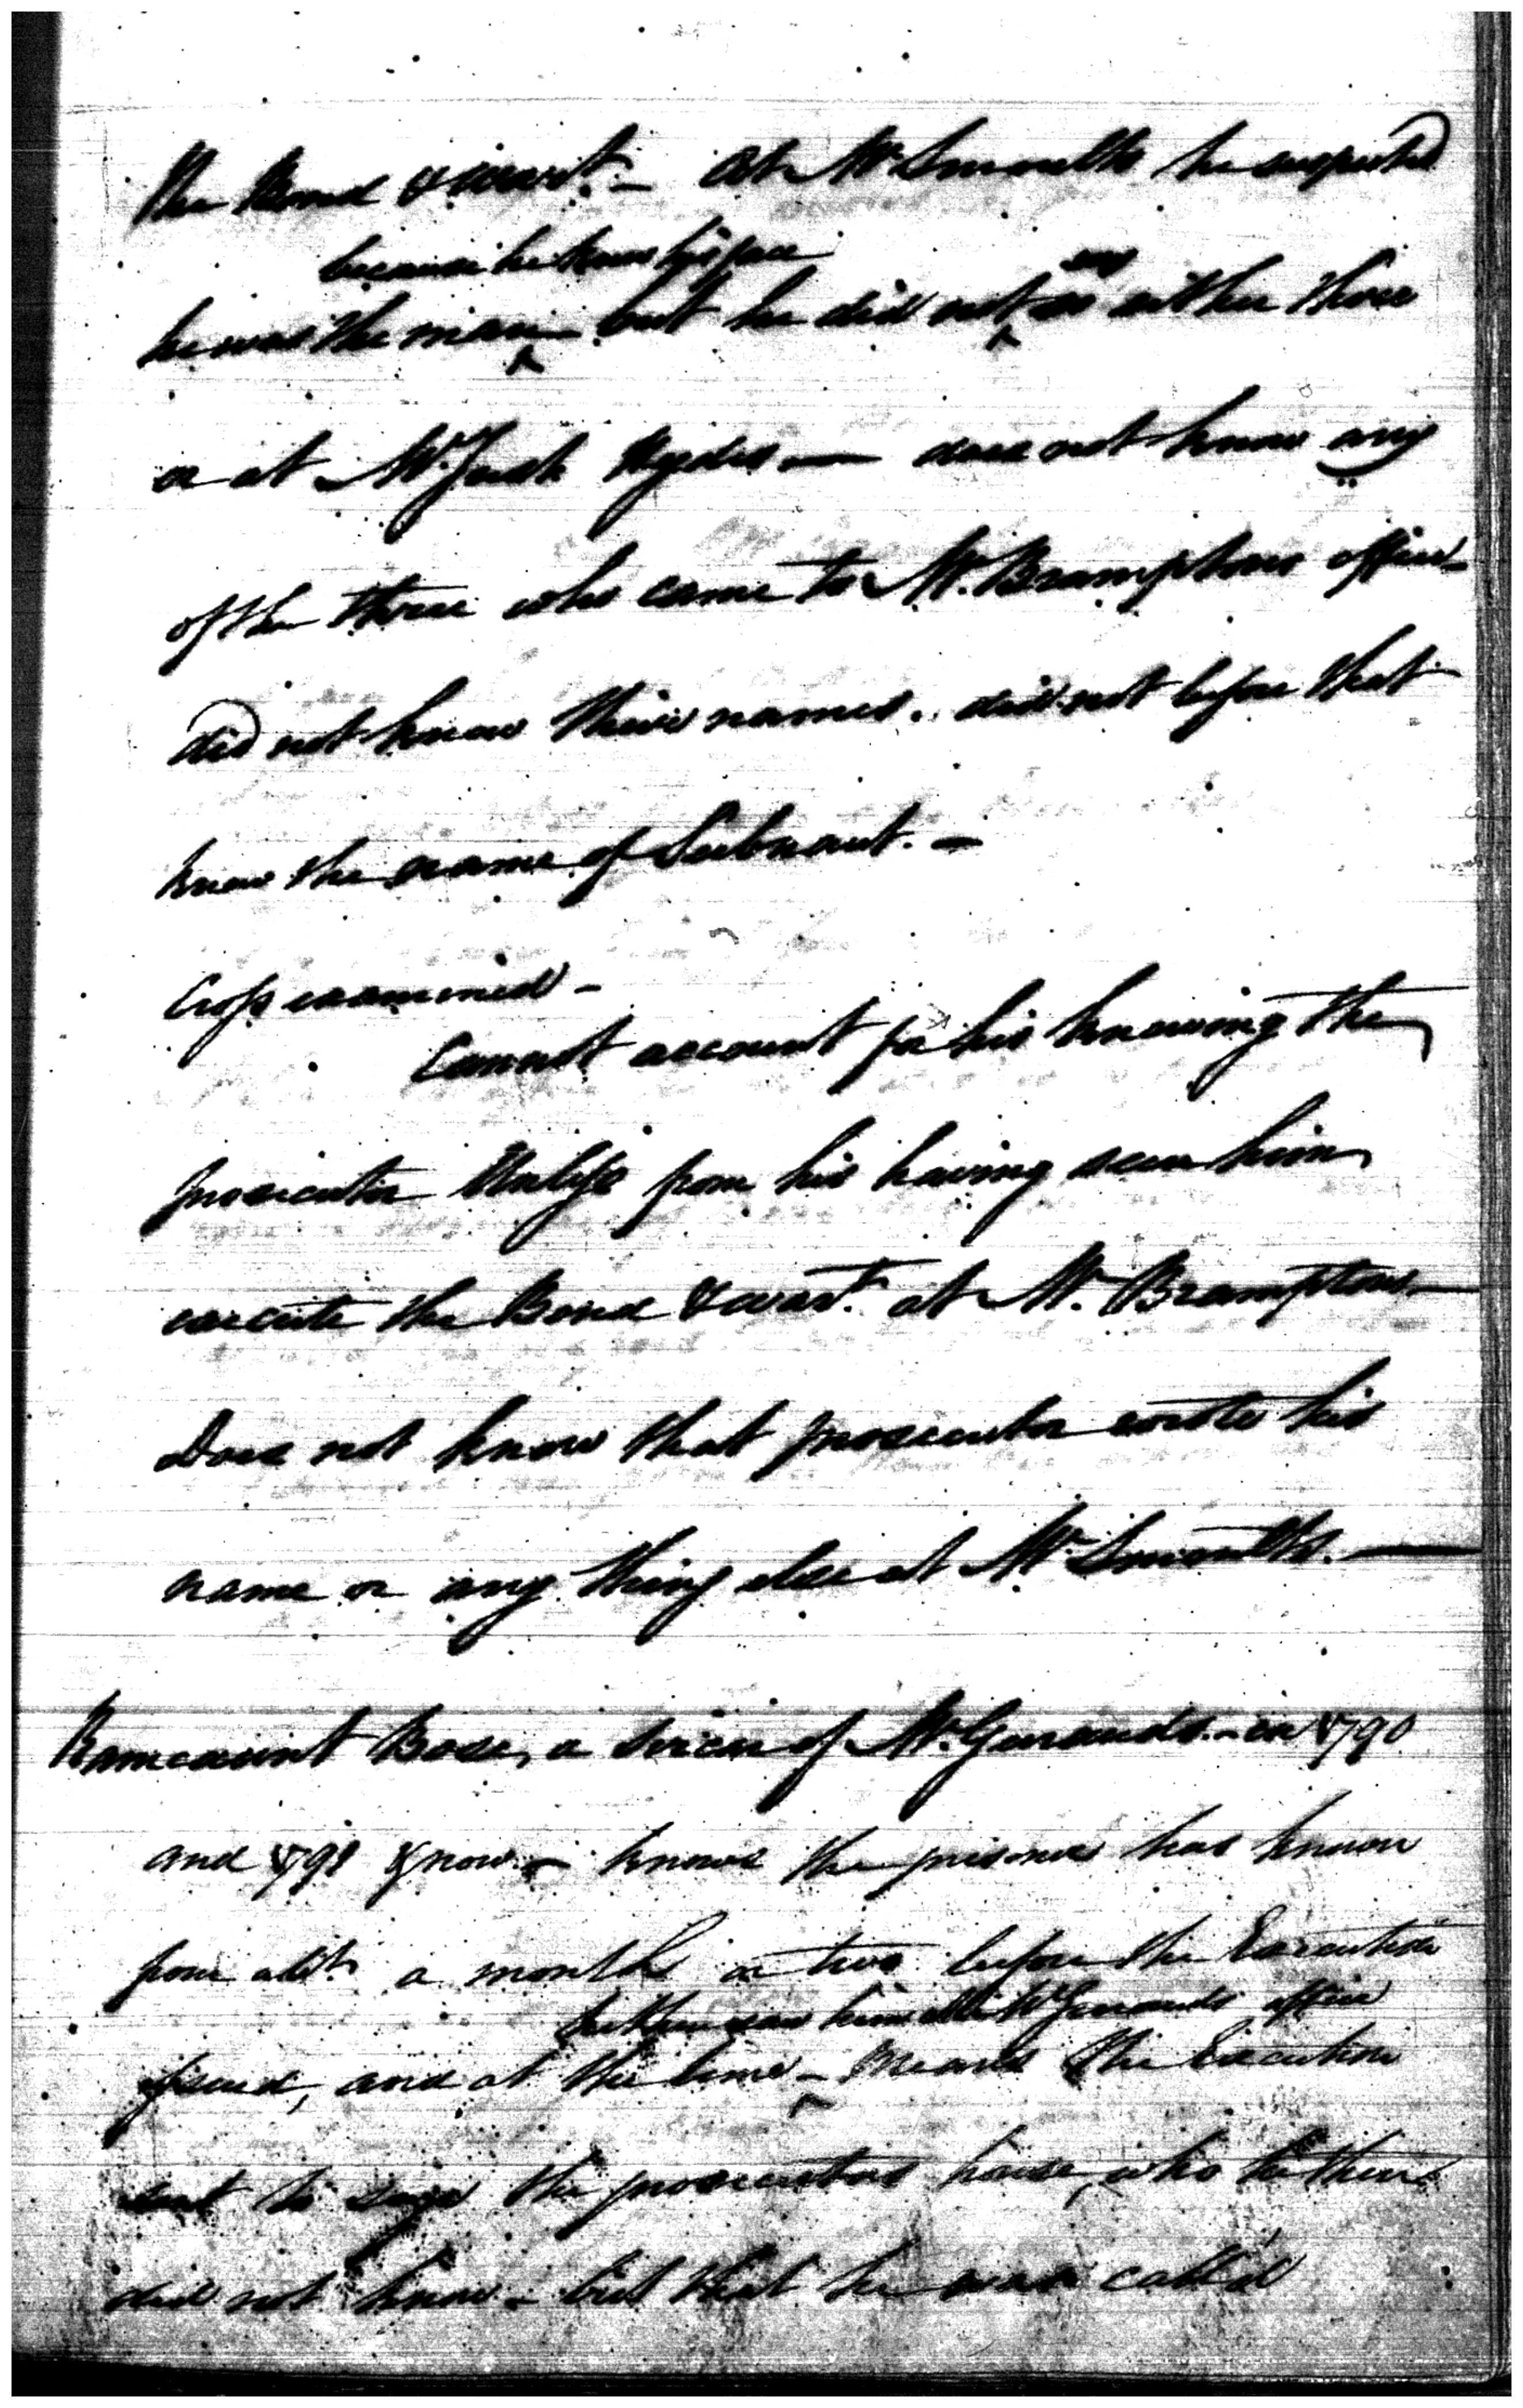 the Bond & warrt. — At Mr. Smoults he suspected
because he knew his face
say
he was the man but he did not so either there
or at Mr. Just. Hydes — does not know any
of the three who came to Mr. Bramptons office —
did not know their names. did not before that
know the name of —
Cross examined —
Cannot account for his knowing the
prosecutor Unless from his having seen him
execute the Bond & warrt. at Mr. Bramptons —
Does not know that prosecutor wrote his
name or any thing else at Mr. Smoults. —
Ramcaunt Bose, a Sircar of Mr. — in 1790
and 1791 & now — knows the prisoner has known
from abt. a month or two before the Execution
he then saw him at Mr. office
issued, and at the time — means the Execution
sent to seize the prosecutors house, who he then
did not know — but that he was call'd